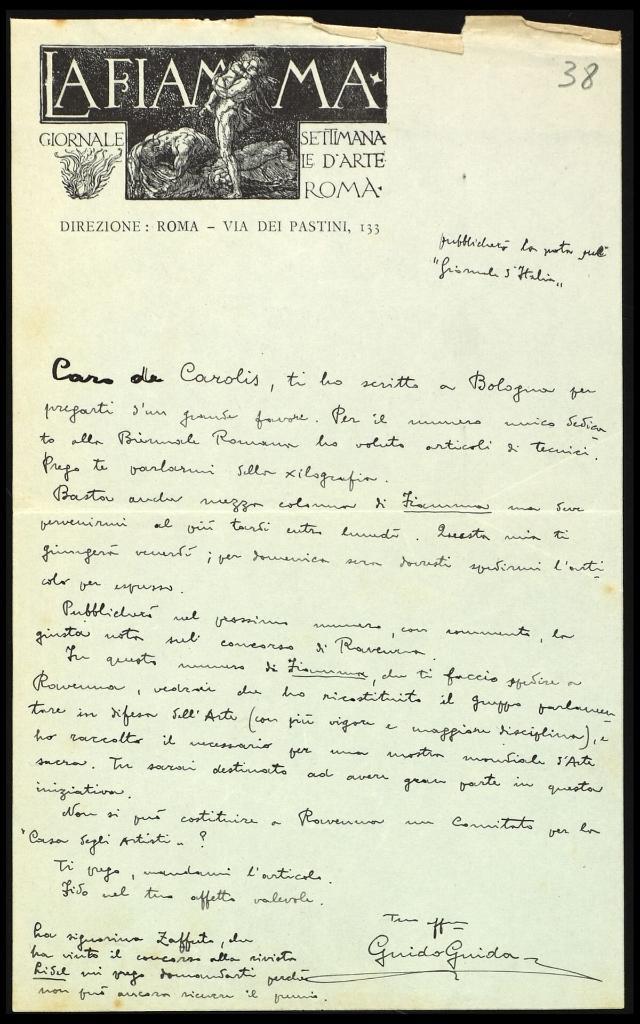 38
LA FIAMMA
GIORNALE SETTIMANA
LE D'ARTE
ROMA
DIREZIONE: ROMA – VIA DEI PASTINI, 133
pubblicherò la nota sul
"Giornale d'Italia„
Caro de Carolis, ti ho scritto a Bologna per
pregarti d'un grande favore. Per il numero unico dedica
to alla Biennale Romana ho voluto articoli di tecnici.
Prego te parlarmi della xilografia.
Basta anche mezza colonna di Fiamma ma deve
pervenirmi al più tardi entro lunedì. Questa mia ti
giungerà venerdì; per domenica sera dovresti spedirmi l'arti-
colo per espresso.
Pubblicherò nel prossimo numero, con commento, la
giusta nota sul concorso di Ravenna.
In questo numero di Fiamma, che ti faccio spedire a
Ravenna, vedrai che ho ricostituito il gruppo parlamen
tare in difesa dell'Arte (con più vigore e maggiore disciplina), e
ho raccolto il necessario per una mostra mondiale d'Arte
sacra. Tu sarai destinato ad avere gran parte in questa
iniziativa.
Non si può costituire a Ravenna un Comitato per la
"Casa degli Artisti„?
Ti prego, mandami l'articolo.
Fido nel tuo affetto valevole.
Tuo aff.mo
Guido Guida
La signorina Zaffuto, che
ha vinto il concorso alla rivista
Lidel mi prega domandarti perchè
non può ancora ricevere il premio.